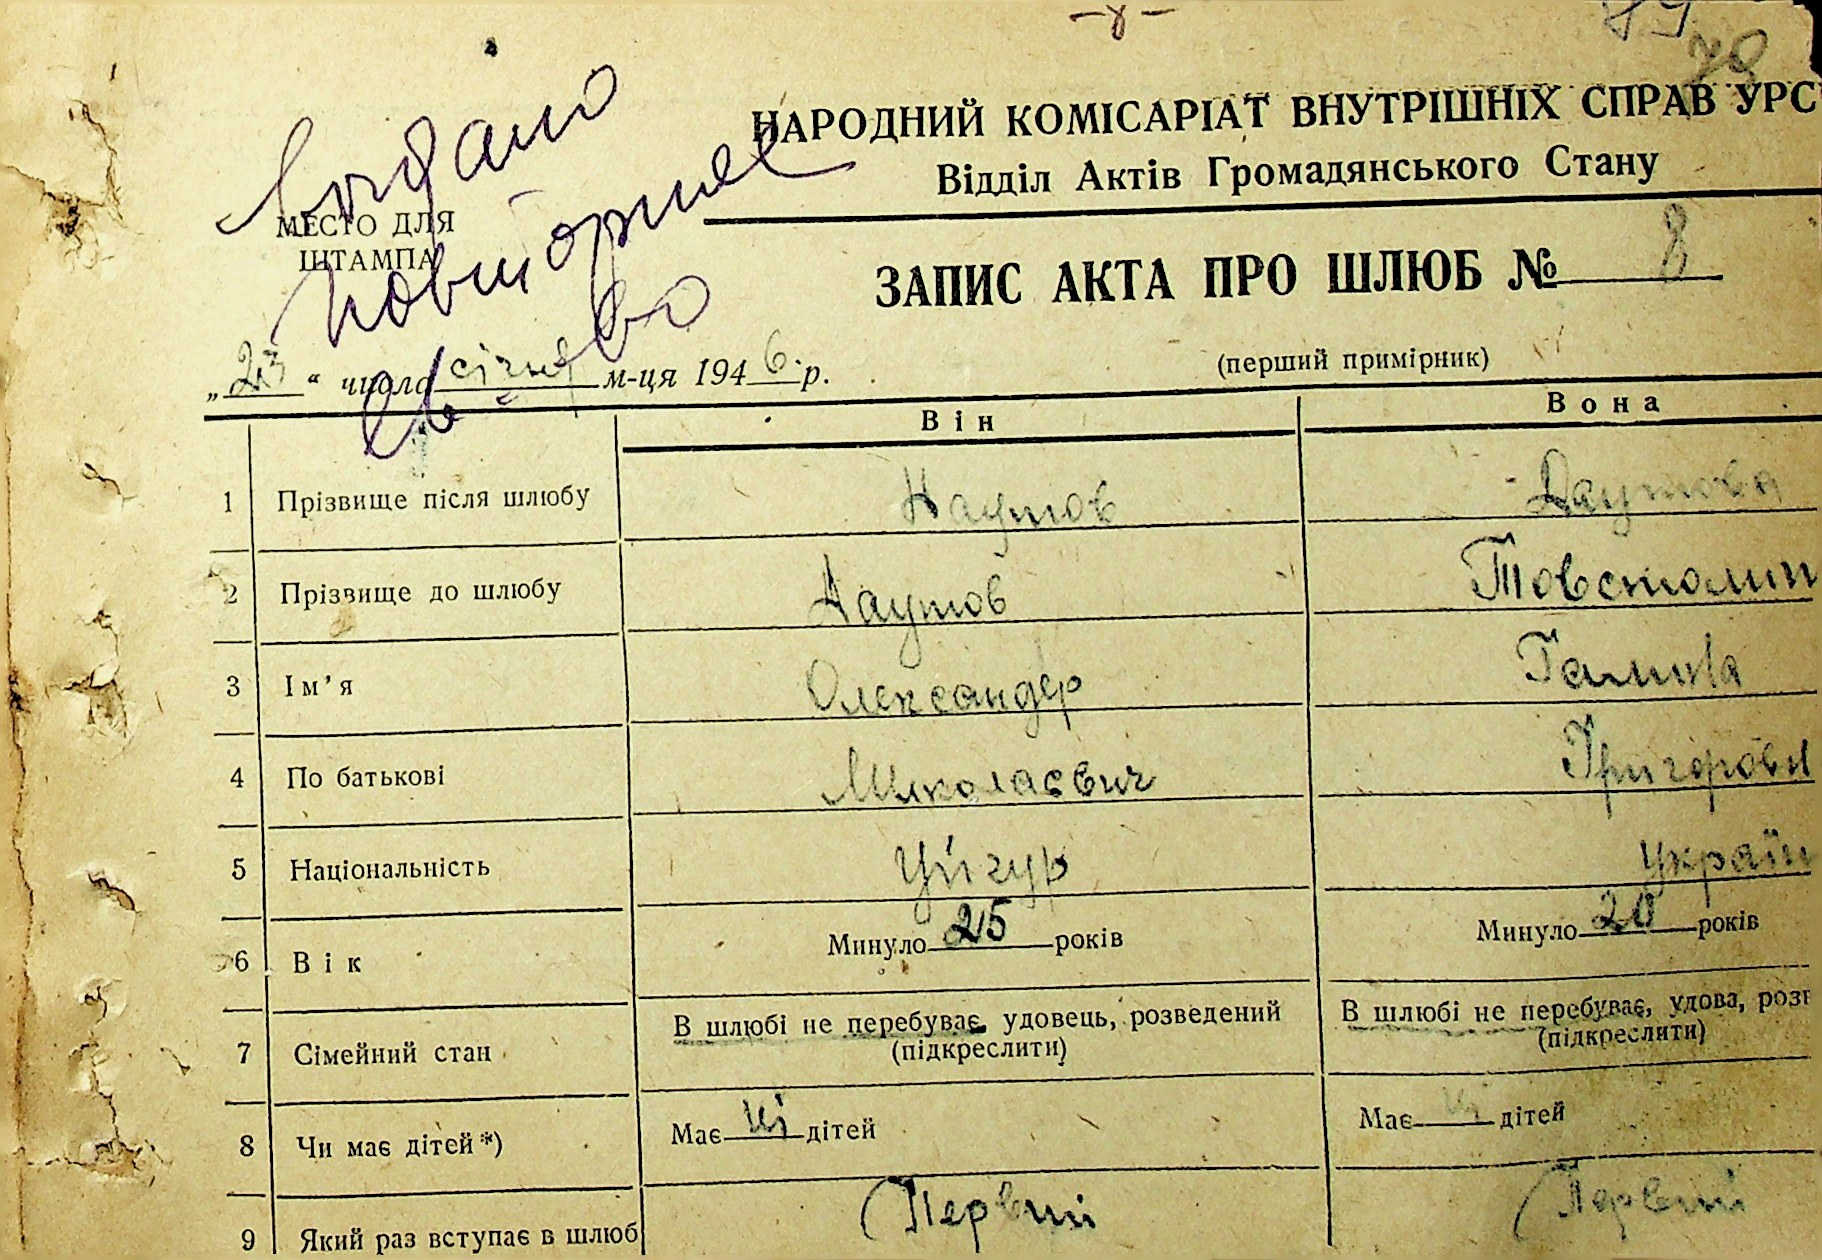 -8-
79
79
НАРОДНИЙ КОМІСАРІАТ ВНУТРІШНІХ СПРАВ УРС
Відділ Актів Громадянського Стану
Видано
повторне
св-во
МЕСТО ДЛЯ
ШТАМПА
ЗАПИС АКТА ПРО ШЛЮБ № 8
(перший примірник)
„23“ числа січня м-ця 1946 р.
Він Вона
1 Прізвище після шлюбу Даутов Даутова
2 Прізвище до шлюбу Даутов Товстолип
3 Ім’я Олександер Галина
4 По батькові Миколаєвич Григоровн
5 Національність Уйгур Україн
6 Вік Минуло 25 років Минуло 20 років
7 Сімейний стан В шлюбі не перебуває, удовець, розведений В шлюбі не перебуває, удова, розв
(підкреслити) (підкреслити)
8 Чи має дітей*) Має ні дітей Має ні дітей
9 Який раз вступає в шлюб Первий Первий